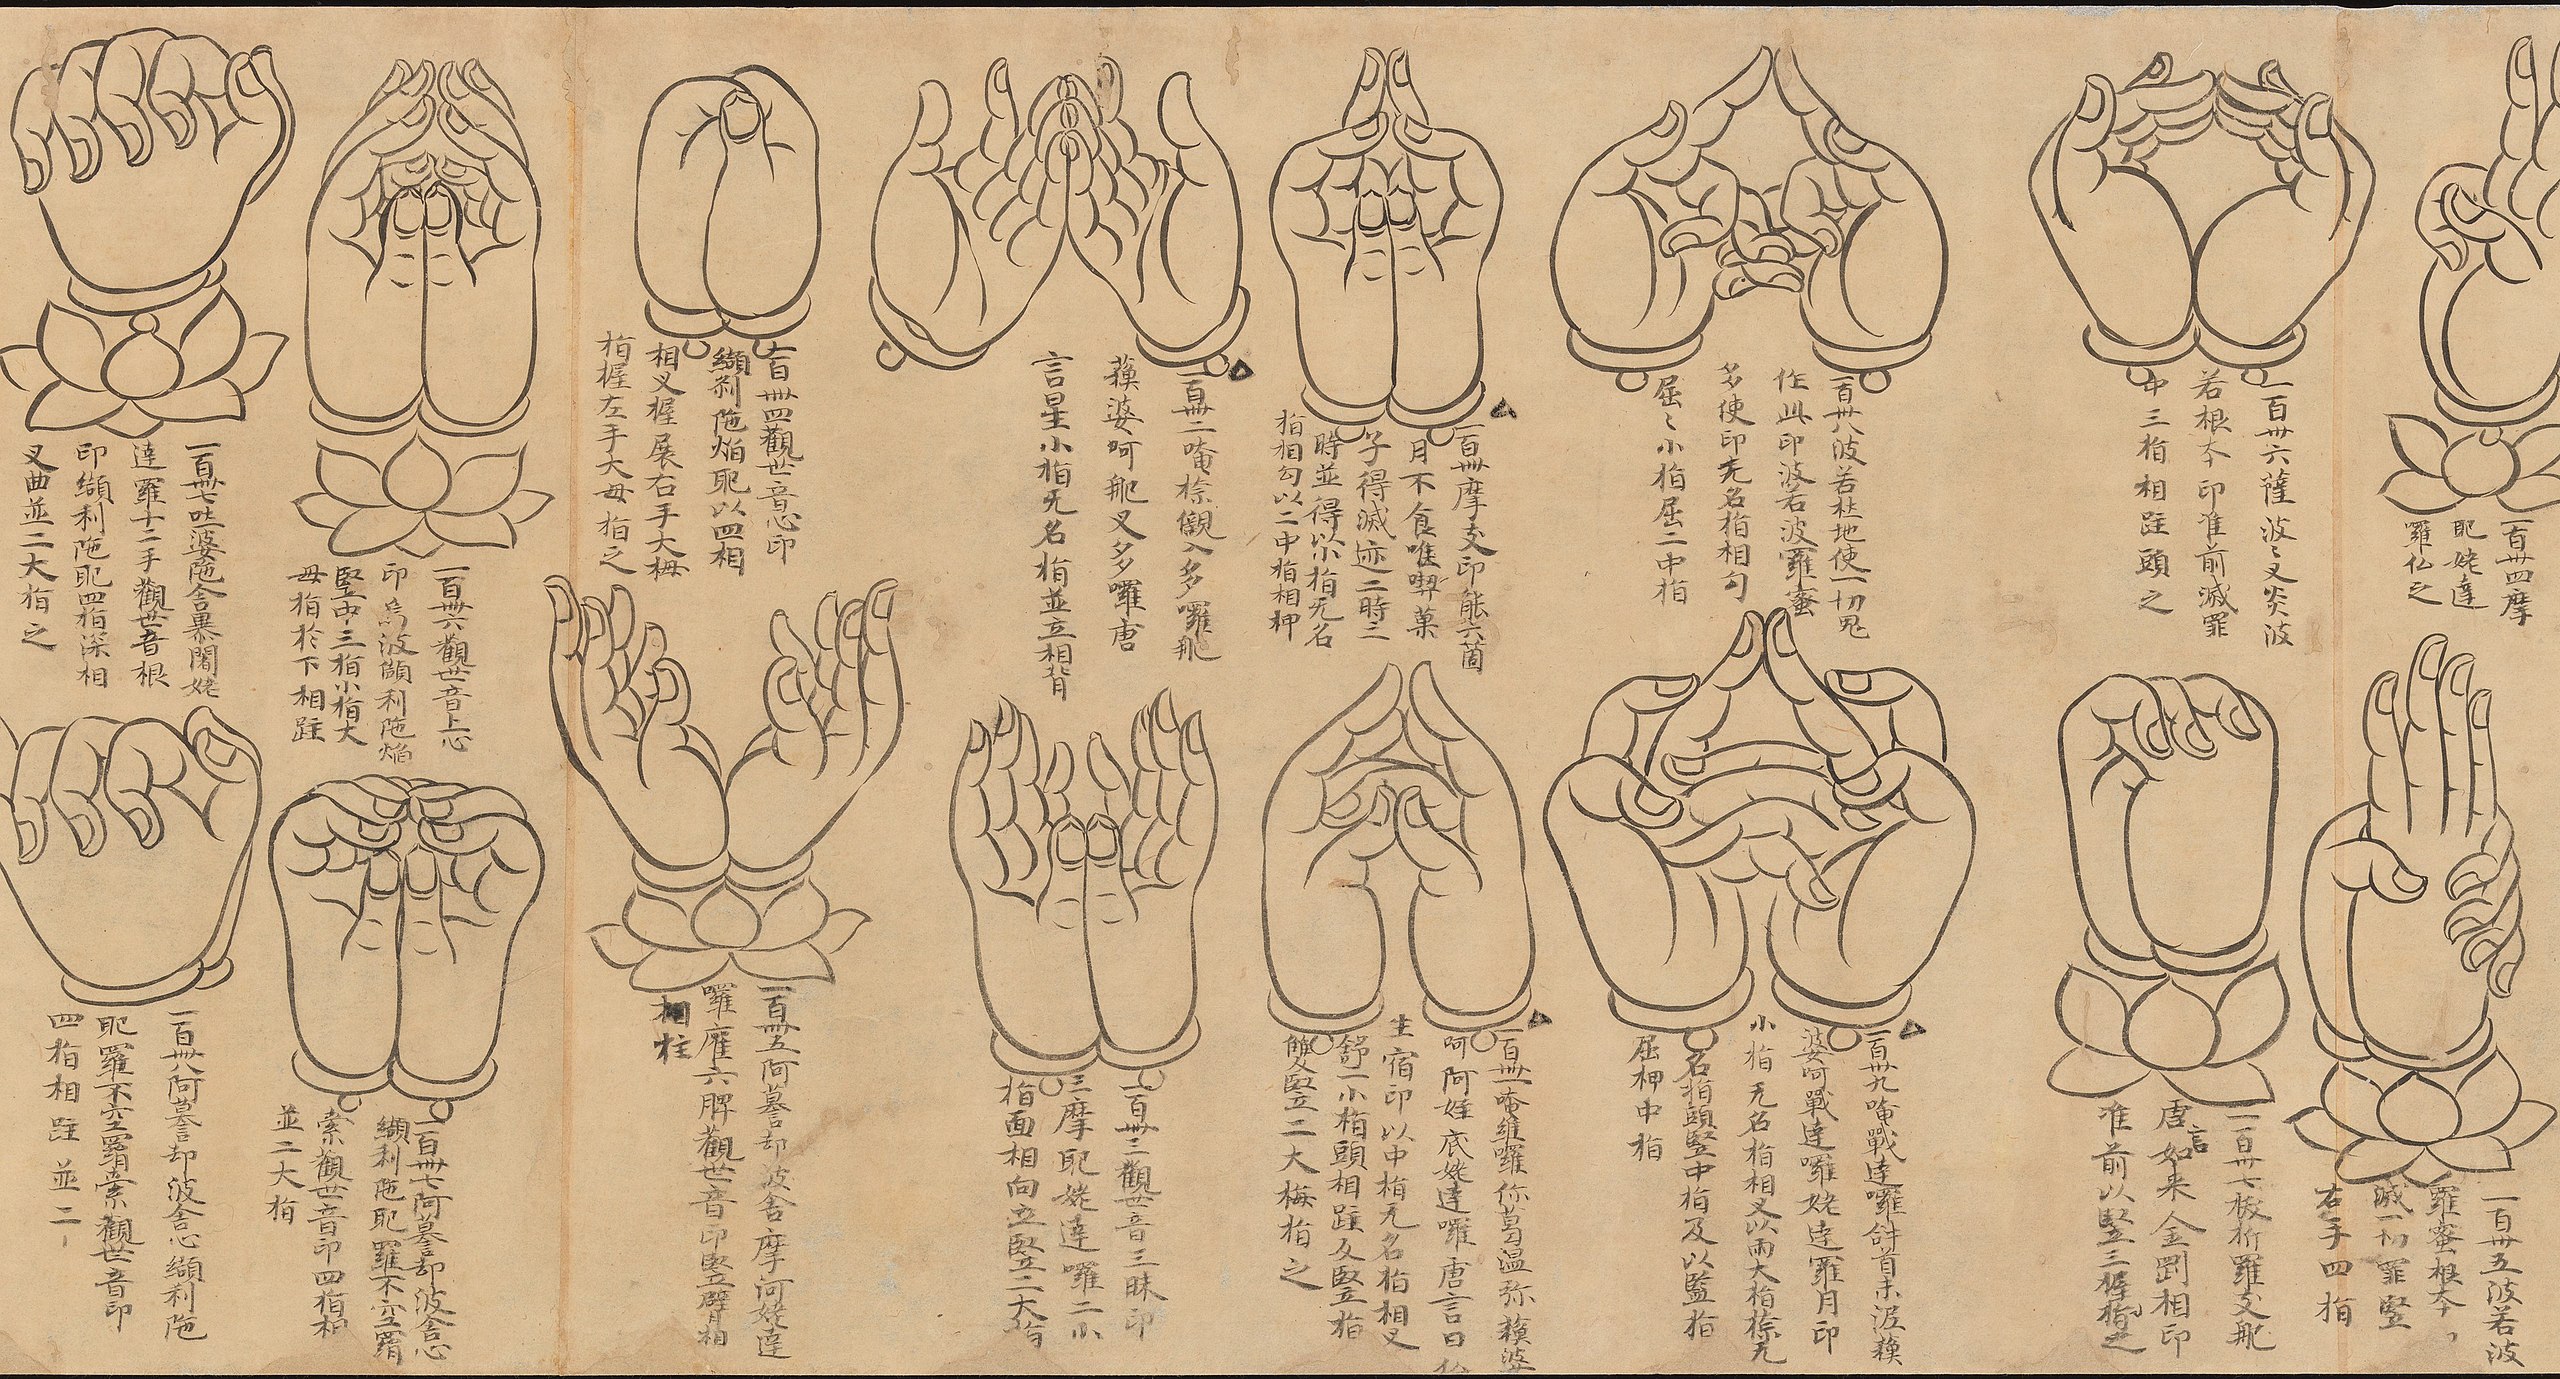 一百卌四摩
耶姥達
羅仏之
一百卌五波若波
羅蜜根本
滅一切罪竪
右手四指
一百卅六薩波〻叉炎波
若根本印准前滅罪
中三指相跓頭之
一百卅七
唐言如来金罰相印
准前以竪三握指之
一百卅八波若杜地使一切鬼
作此印波若波羅蜜
多使印无名指相勾
屈〻小指屈二中指
一百卅九唵戰達囉
婆呵戰達囉姥達羅月印
小指无名指相叉以兩大指捺无
名指頭竪中指及以監指
屈押中指
一百卌摩支印能六箇
月不食唯喫菓
子得滅迹二時三
時並得以小指无名
指相勾以二中指相押
一百卌一唵維囉你葛温弥
呵阿姪底姥達囉唐言曰
生宿印以中指无名指相叉
舒一小指頭相跓及竪立指
雙竪二大梅指之
一百卌二唵捺儭入多囉
蘋婆呵 叉多囉唐
言星小指无名指並立相背
一百卌三觀世音三昧印
三摩耶姥達囉二小
指面相向立竪二大指
一百卌四觀世音心印
纈剎陁焔耶以四相
相叉握展右手大拇
指握左手大母指之
一百卌五阿慕却波舍摩河姥達
囉雁六脾觀世音印竪臂相
相柱
一百卌六觀世音上心
印烏波纈利陁焔
竪中三指小指大
母指於下相跓
一百卌七阿慕却波舍心
纈利陁耶羅不空羂
索觀世音印四指相
並二大指
一百卌七吐婆陁舍裹闍姥
達羅十二手觀世音根
印纈利陁耶四指深相
叉曲並二大指之
一百卌八阿慕却波舍心纈利陁
耶羅不空羂索觀世音印
四指相跓並二